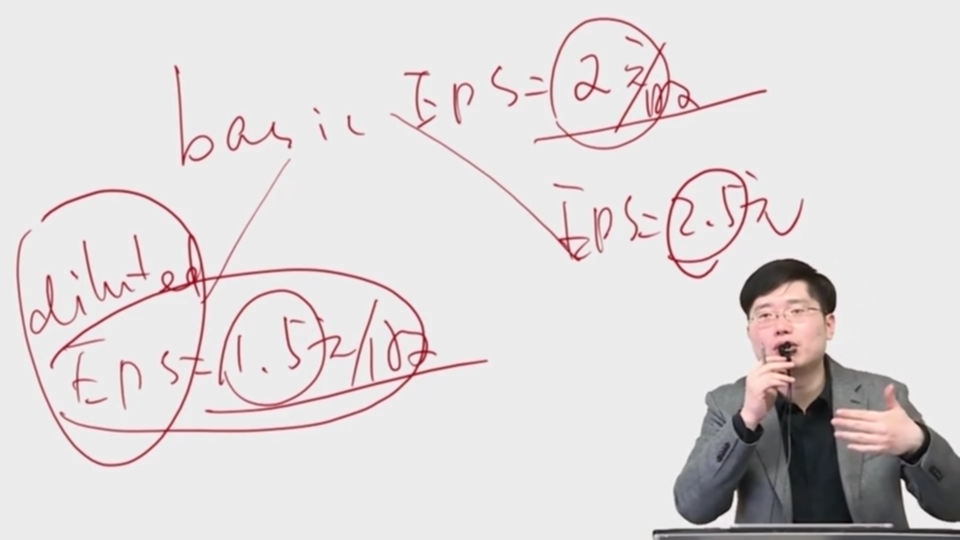 basic EPS=2元/股
EPS=2.5元
diluted
EPS=1.5元/股